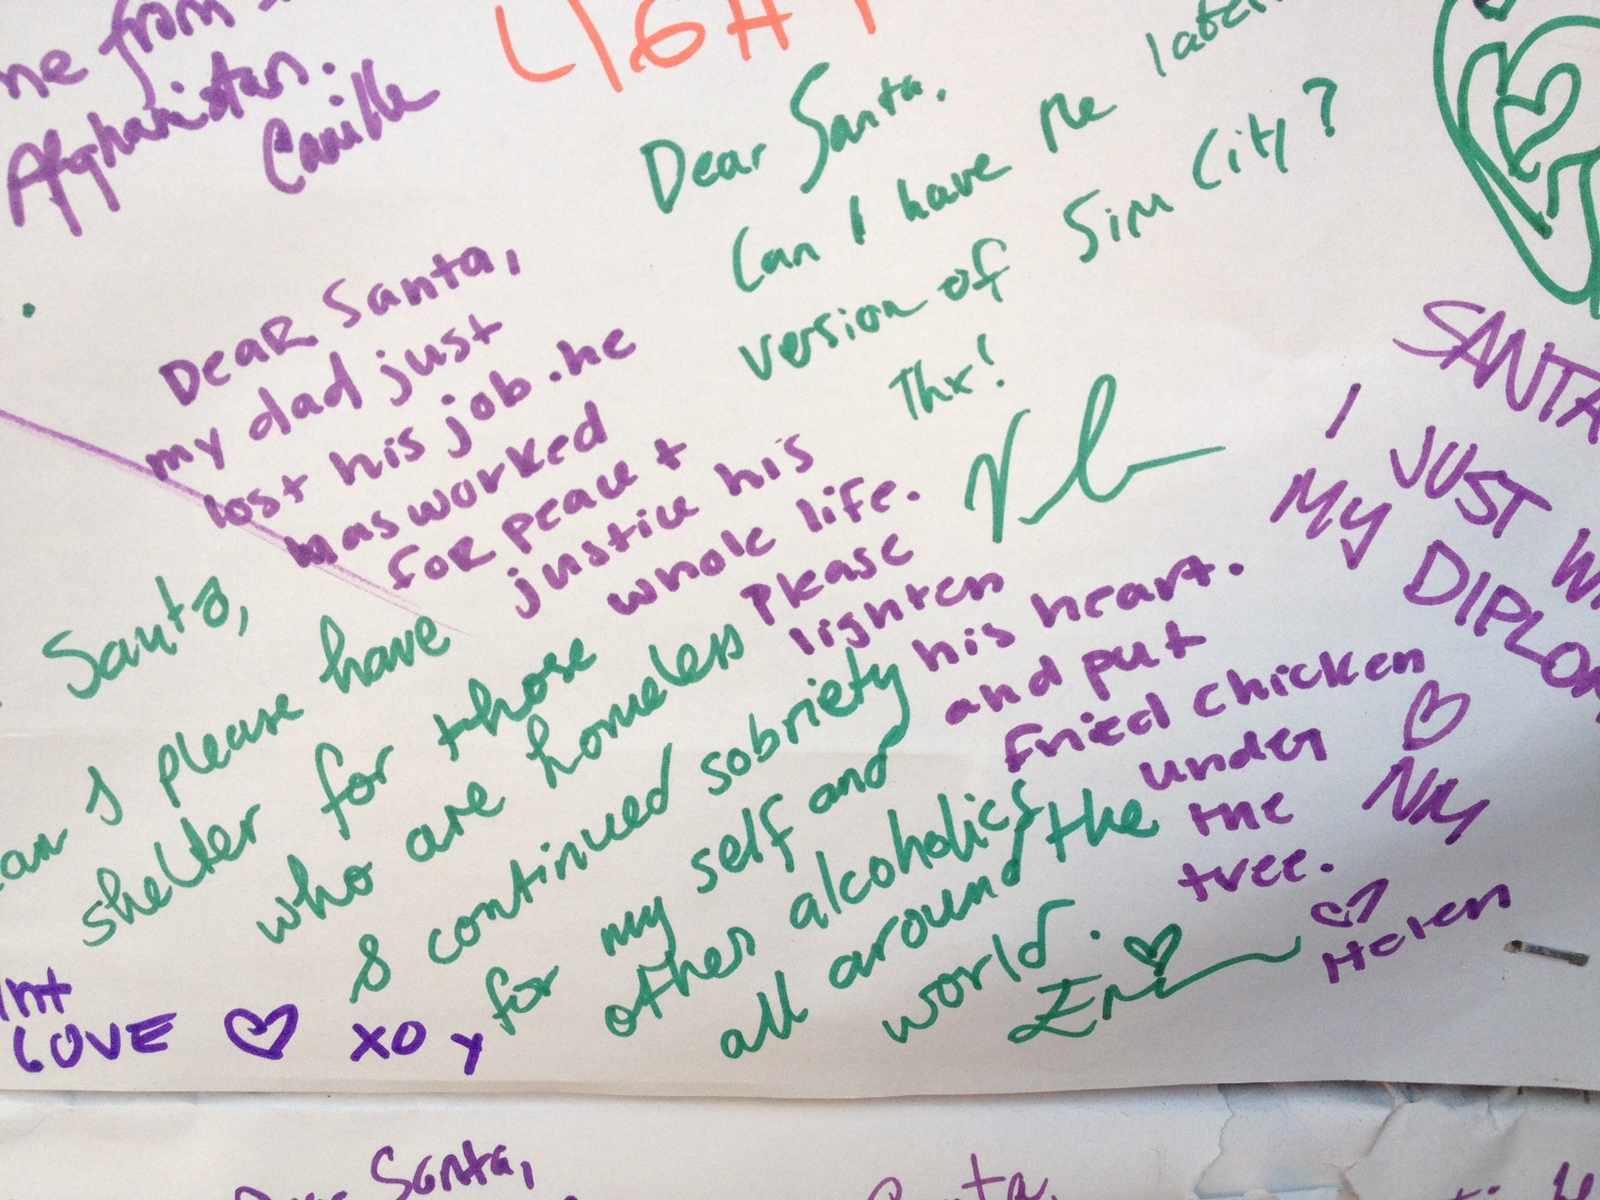 from
Afghanistan.
Camille
LIGHT
Dear Santa,
Can I have the
version of Sim City?
Thx!
Dear Santa,
my dad just
lost his job. he
has worked
for peace +
justice his
whole life.
please
lighten
his heart.
and put
fried chicken
under
the
tree.
Helen
SANTA
I JUST
MY
NM
Santa,
I please have
shelter for those
who are homeless
& continued sobriety
for my self and
other alcoholics
all around the
world.
LOVE XO
Santa,